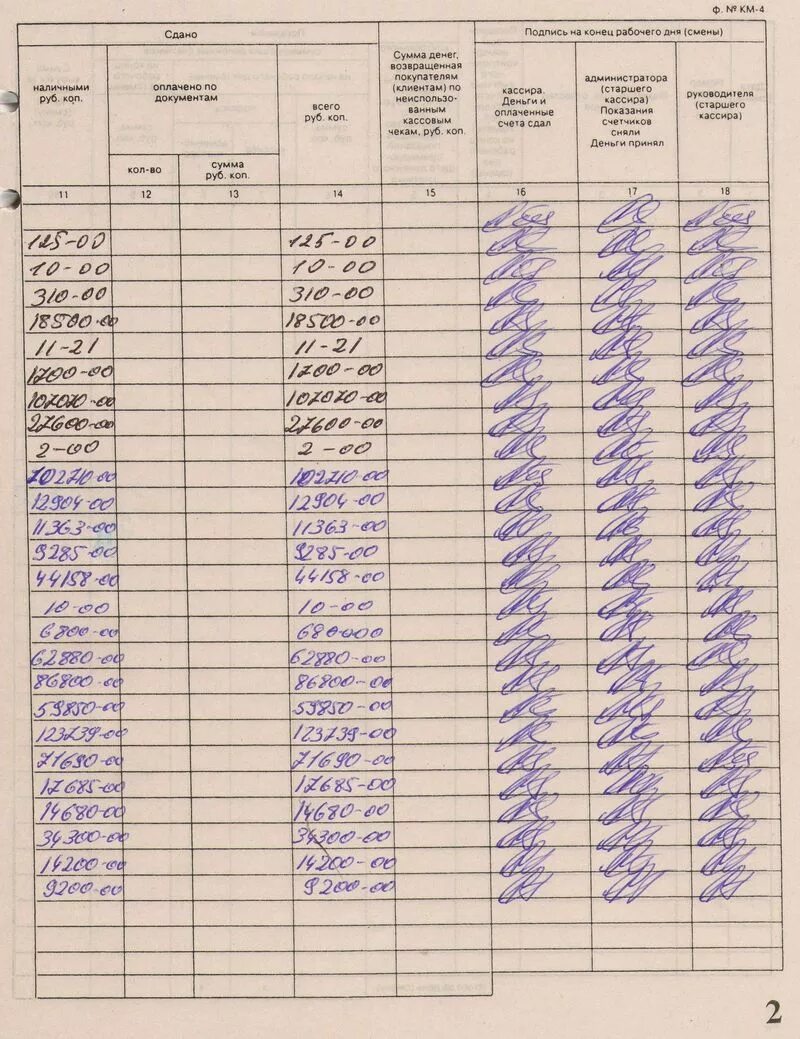 ф. № КМ-4
Сдано
Подпись на конец рабочего дня (смены)
наличными
руб. коп.
оплачено по
документам
кол-во
сумма
руб. коп.
всего
руб. коп.
Сумма денег,
возвращенная
покупателям
(клиентам) по
неиспользо-
ванным
кассовым
чекам, руб. коп.
кассира.
Деньги и
оплаченные
счета сдал
администратора
(старшего
кассира)
Показания
счетчиков
сняли
Деньги принял
руководителя
(старшего
кассира)
11 12 13 14 15 16 17 18
125-00 125-00
10-00 10-00
310-00 310-00
18500-00 18500-00
11-21 11-21
1700-00 1700-00
107070-00 107070-00
27600-00 27600-00
2-00 2-00
102710-00 102710-00
12904-00 12904-00
11363-00 11363-00
9285-00 9285-00
44158-00 44158-00
10-00 10-00
6800-00 680000
62880-00 62880-00
86800-00 86800-00
59850-00 59850-00
123739-00 123739-00
71690-00 71690-00
17685-00 17685-00
14680-00 14680-00
34300-00 34300-00
14200-00 14200-00
9200-00 9200-00
2